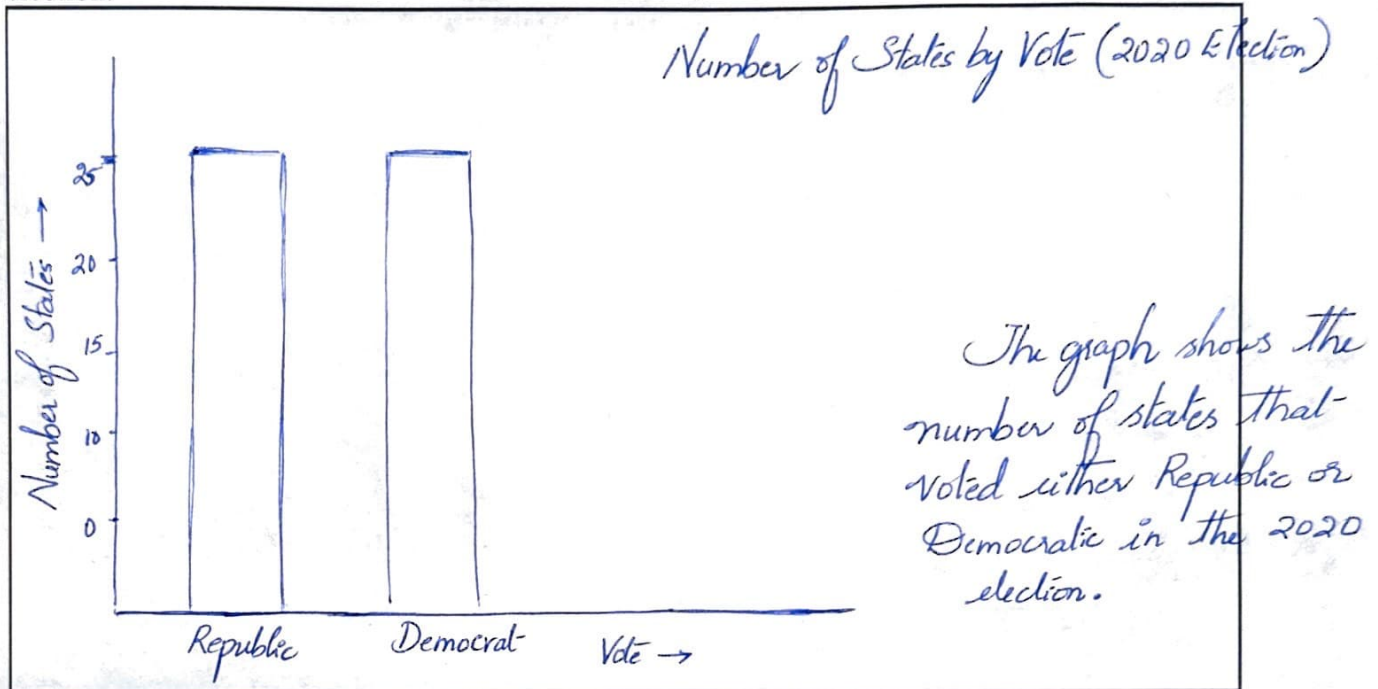 Number of States by Vote (2020 Election)
25
20
15
10
0
Number of States →
Republic
Democrat
Vote →
The graph shows the
number of states that
voted either Republic or
Democratic in the 2020
election.